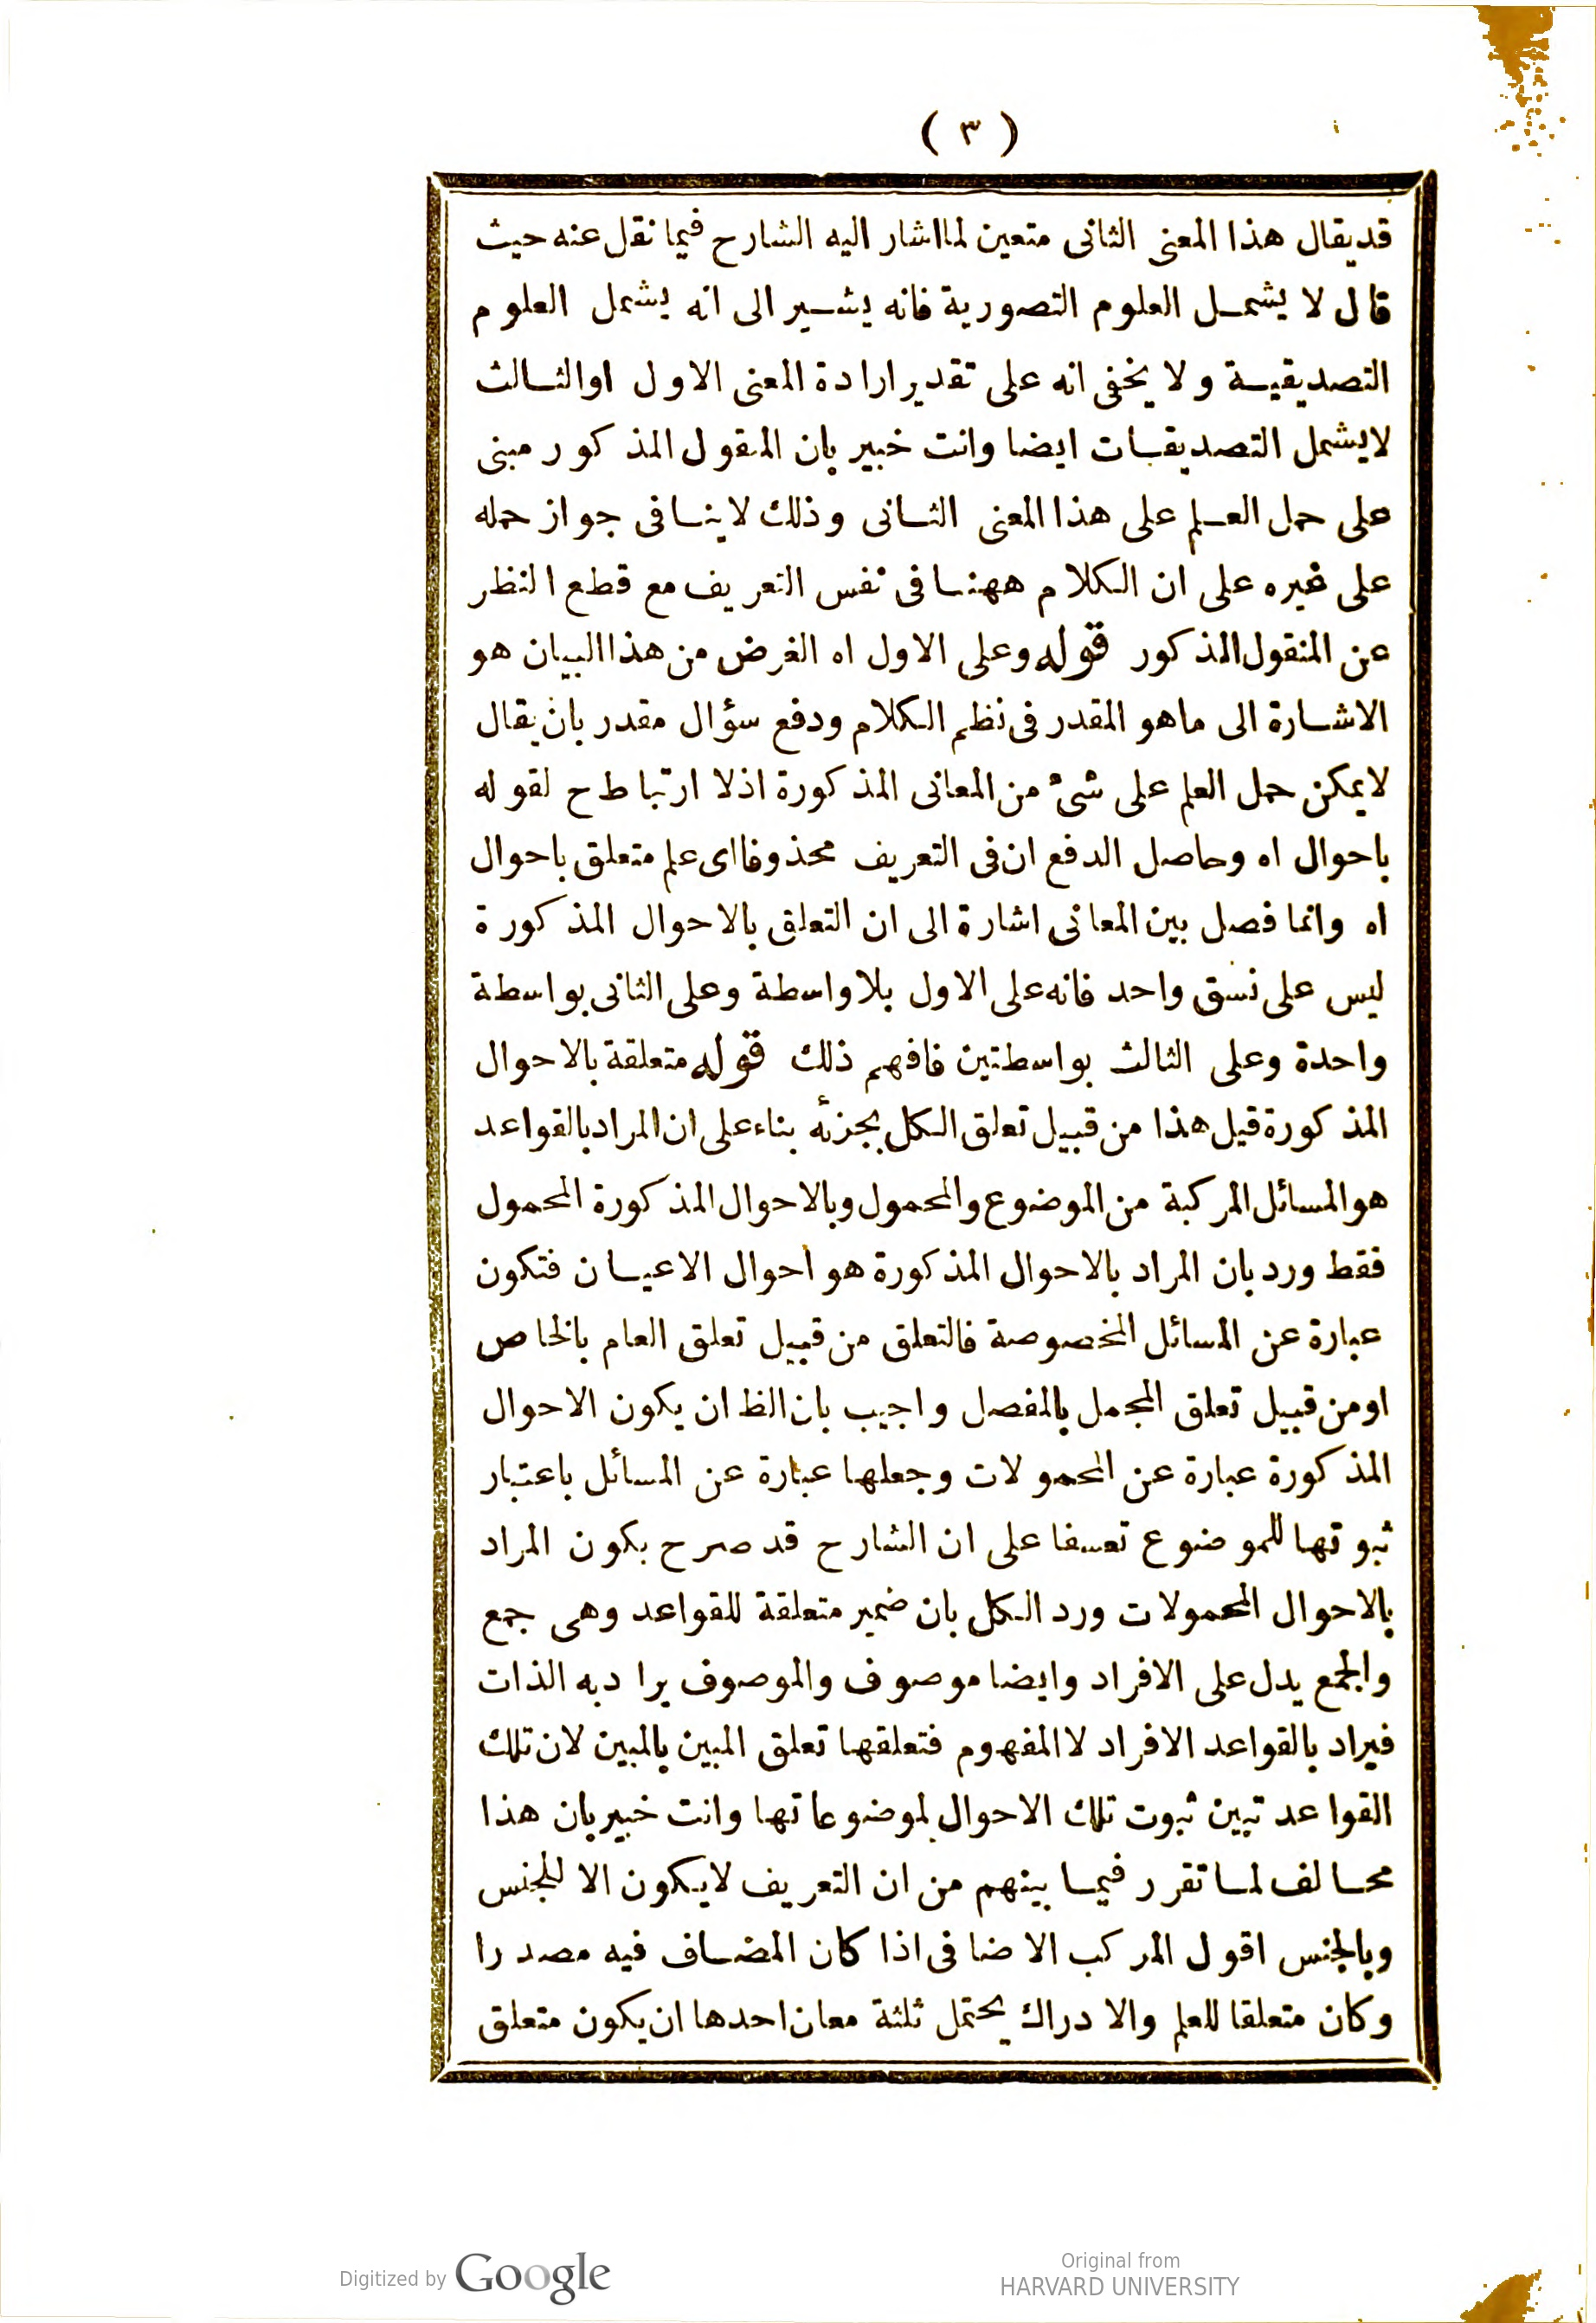 ( ٣ )
قد يقال هذا المعنى الثانى متعين لما اشار اليه الشارح فيما نقل عنه حيث
قال لا يشمل العلوم التصورية فانه يشير الى انه يشمل العلوم
التصديقية ولا يخفى انه على تقدير ارادة المعنى الاول او الثالث
لا يشمل التصديقات ايضا وانت خبير بان المنقول المذكور مبنى
على حمل العلم على هذا المعنى الثانى وذلك لا ينافى جواز حمله
على غيره على ان الكلام ههنا فى نفس التعريف مع قطع النظر
عن المنقول المذكور قوله وعلى الاول اه الغرض من هذا البيان هو
الاشارة الى ما هو المقدر فى نظم الكلام ودفع سؤال مقدر بان يقال
لا يمكن حمل العلم على شئ من المعانى المذكورة اذ لا ارتباط ح لقوله
باحوال اه وحاصل الدفع ان فى التعريف محذوفا اى علم متعلق باحوال
اه وانما فصل بين المعانى اشارة الى ان التعلق بالاحوال المذكورة
ليس على نسق واحد فانه على الاول بلا واسطة وعلى الثانى بواسطة
واحدة وعلى الثالث بواسطتين فافهم ذلك قوله متعلقة بالاحوال
المذكورة قيل هذا من قبيل تعلق الكل بجزئه بناء على ان المراد بالقواعد
هو المسائل المركبة من الموضوع والمحمول وبالاحوال المذكورة المحمول
فقط ورد بان المراد بالاحوال المذكورة هو احوال الاعيان فتكون
عبارة عن المسائل المخصوصة فالتعلق من قبيل تعلق العام بالخاص
او من قبيل تعلق المجمل بالمفصل واجيب بان الظ ان يكون الاحوال
المذكورة عبارة عن المحمولات وجعلها عبارة عن المسائل باعتبار
ثبوتها للموضوع تعسفا على ان الشارح قد صرح بكون المراد
بالاحوال المحمولات ورد الكل بان ضمير متعلقة للقواعد وهى جمع
والجمع يدل على الافراد وايضا موصوف والموصوف يراد به الذات
فيراد بالقواعد الافراد لا المفهوم فتعلقها تعلق المبين بالمبين لان تلك
القواعد تبين ثبوت تلك الاحوال لموضوعاتها وانت خبير بان هذا
محالف لما تقرر فيما بينهم من ان التعريف لا يكون الا للجنس
وبالجنس اقول المركب الاضافى اذا كان المضاف فيه مصدرا
وكان متعلقا للعلم والادراك يحتمل ثلثة معان احدها ان يكون متعلق
Digitized by Google
Original from
HARVARD UNIVERSITY